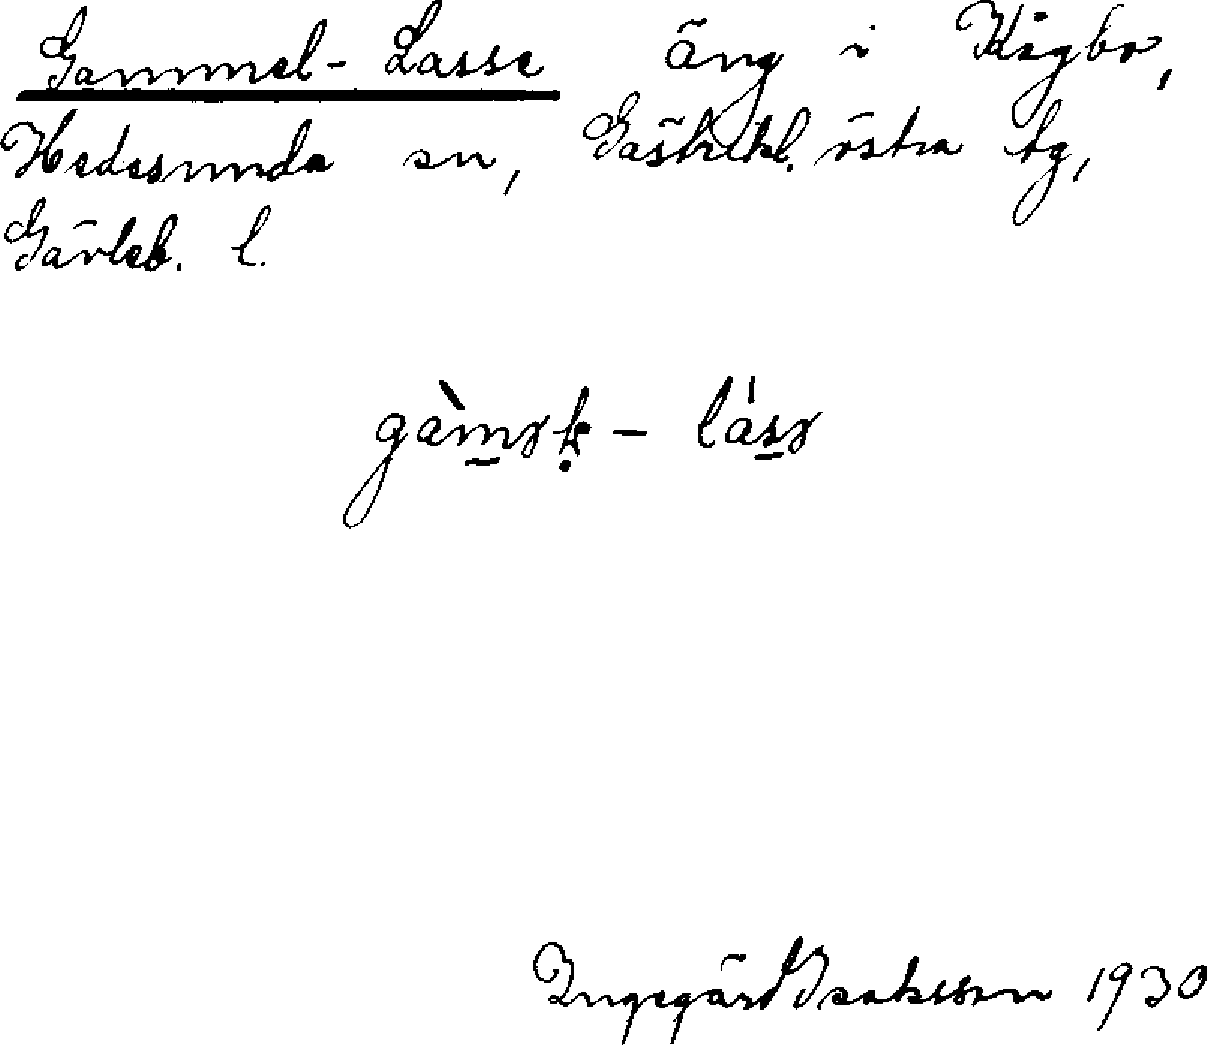 Gammel-Lasse äng i Kågbo,
Hedesunda sn, Gästrikl. östra tg,
Gävleb. l.
Ingegärd Isaksson 1930